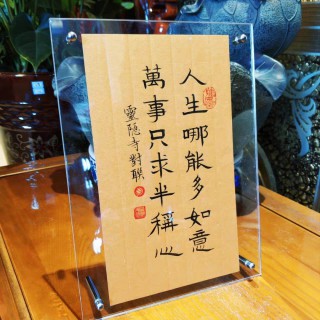 人生哪能多如意
萬事只求半稱心
靈隐寺對聯